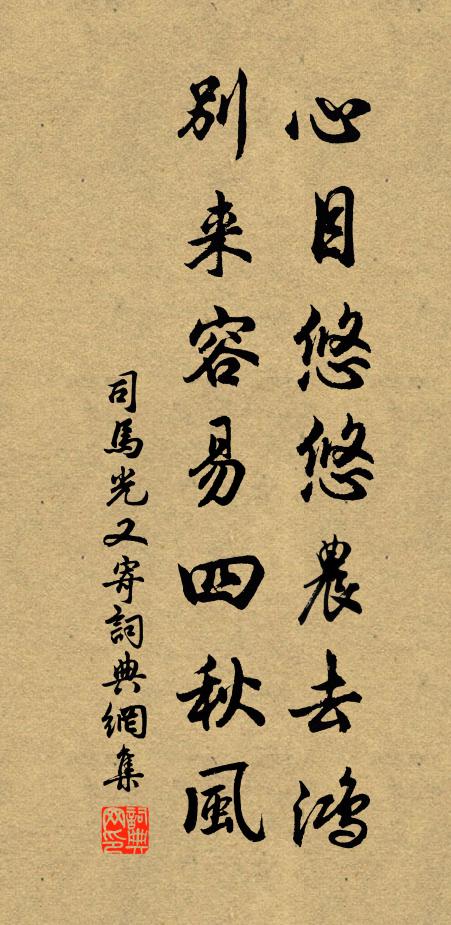 心目悠悠農去鴻
別来容易四秋風
司馬光又寄詞典網集
詞典網印